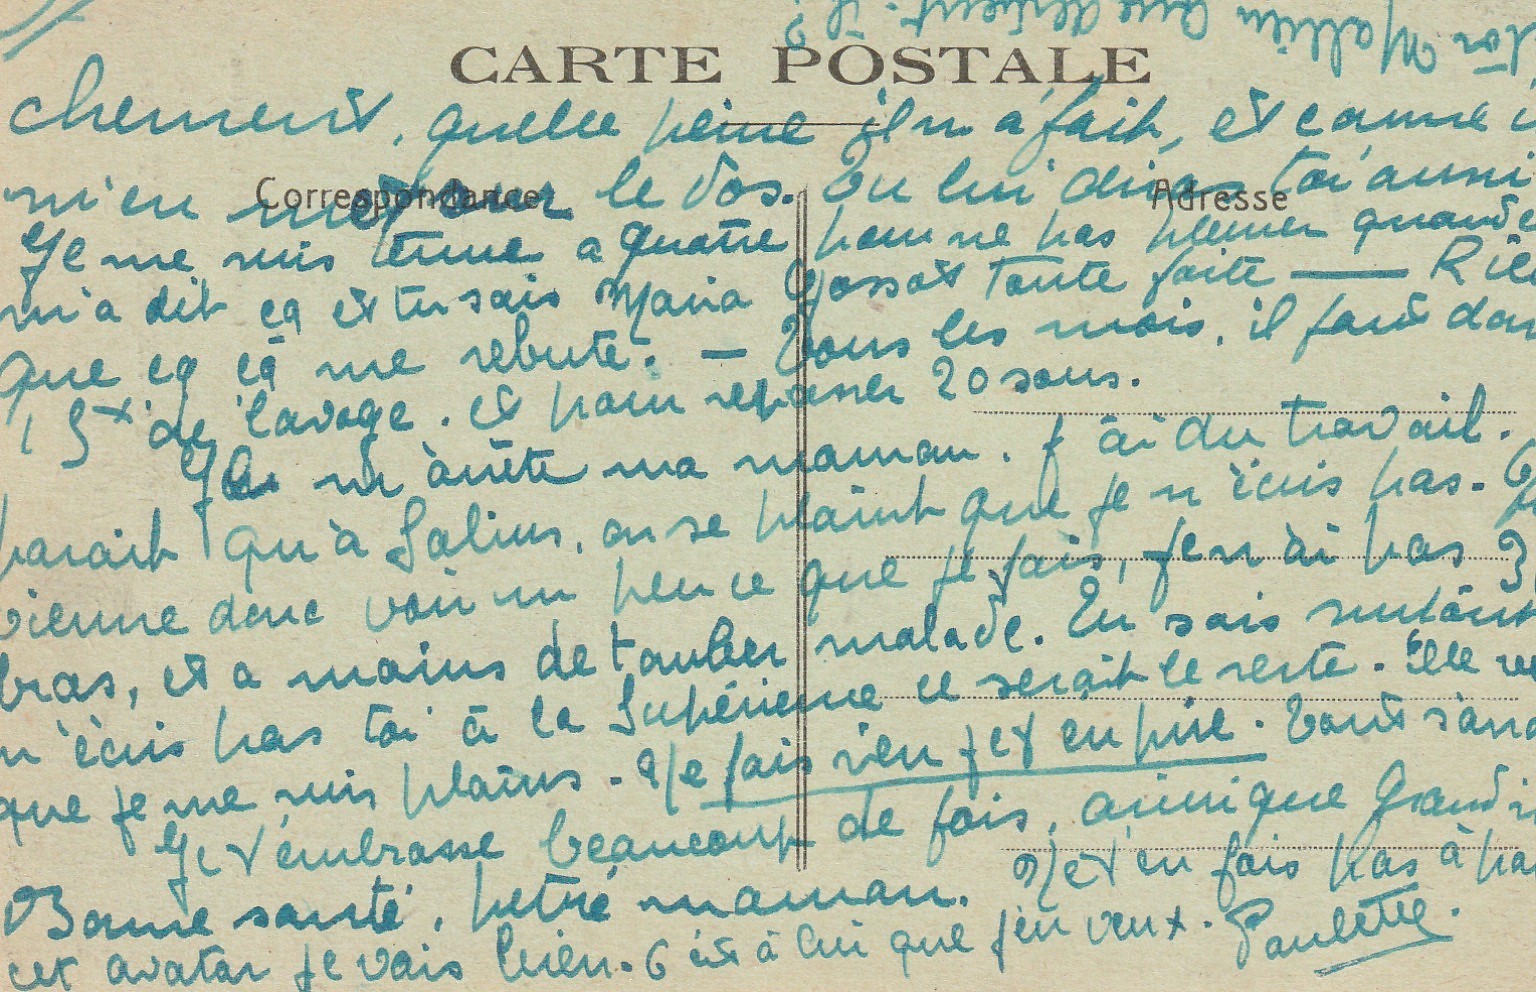 Victor Mallieu que devient-il?
CARTE POSTALE
chement, quelle peine il m'a fait, et comme i
m'en met sur le dos. Tu lui diras toi aussi
Correspondance
Adresse
Je me suis tenue a quatre pour ne pas pleurer quand
m'a dit ça et tu sais Maria Gossot toute faite — Rie
que ça ça me rebute. — Tous les mois, il faut don
15x de lavage. et pour repasser 20 sous.
Je m'arrête ma maman. J'ai du travail.
parait qu'à Salins, on se plaint que je n'écris pas.
vienne donc voir un peu ce que je fais, je n'ai pas 3
bras, et a moins de tomber malade. Tu sais surtout
n'écris pas toi à la Supérieure ce serait le reste. Elle
que je me suis plains. Ne fais rien je t'en prie. Tout s'ar
Je t'embrasse beaucoup de fois, ainsi que Grand
Bonne santé, petite maman. N'et en fais pas à
cet avatar je vais bien. C'est à lui que j'en veux. Paulette.